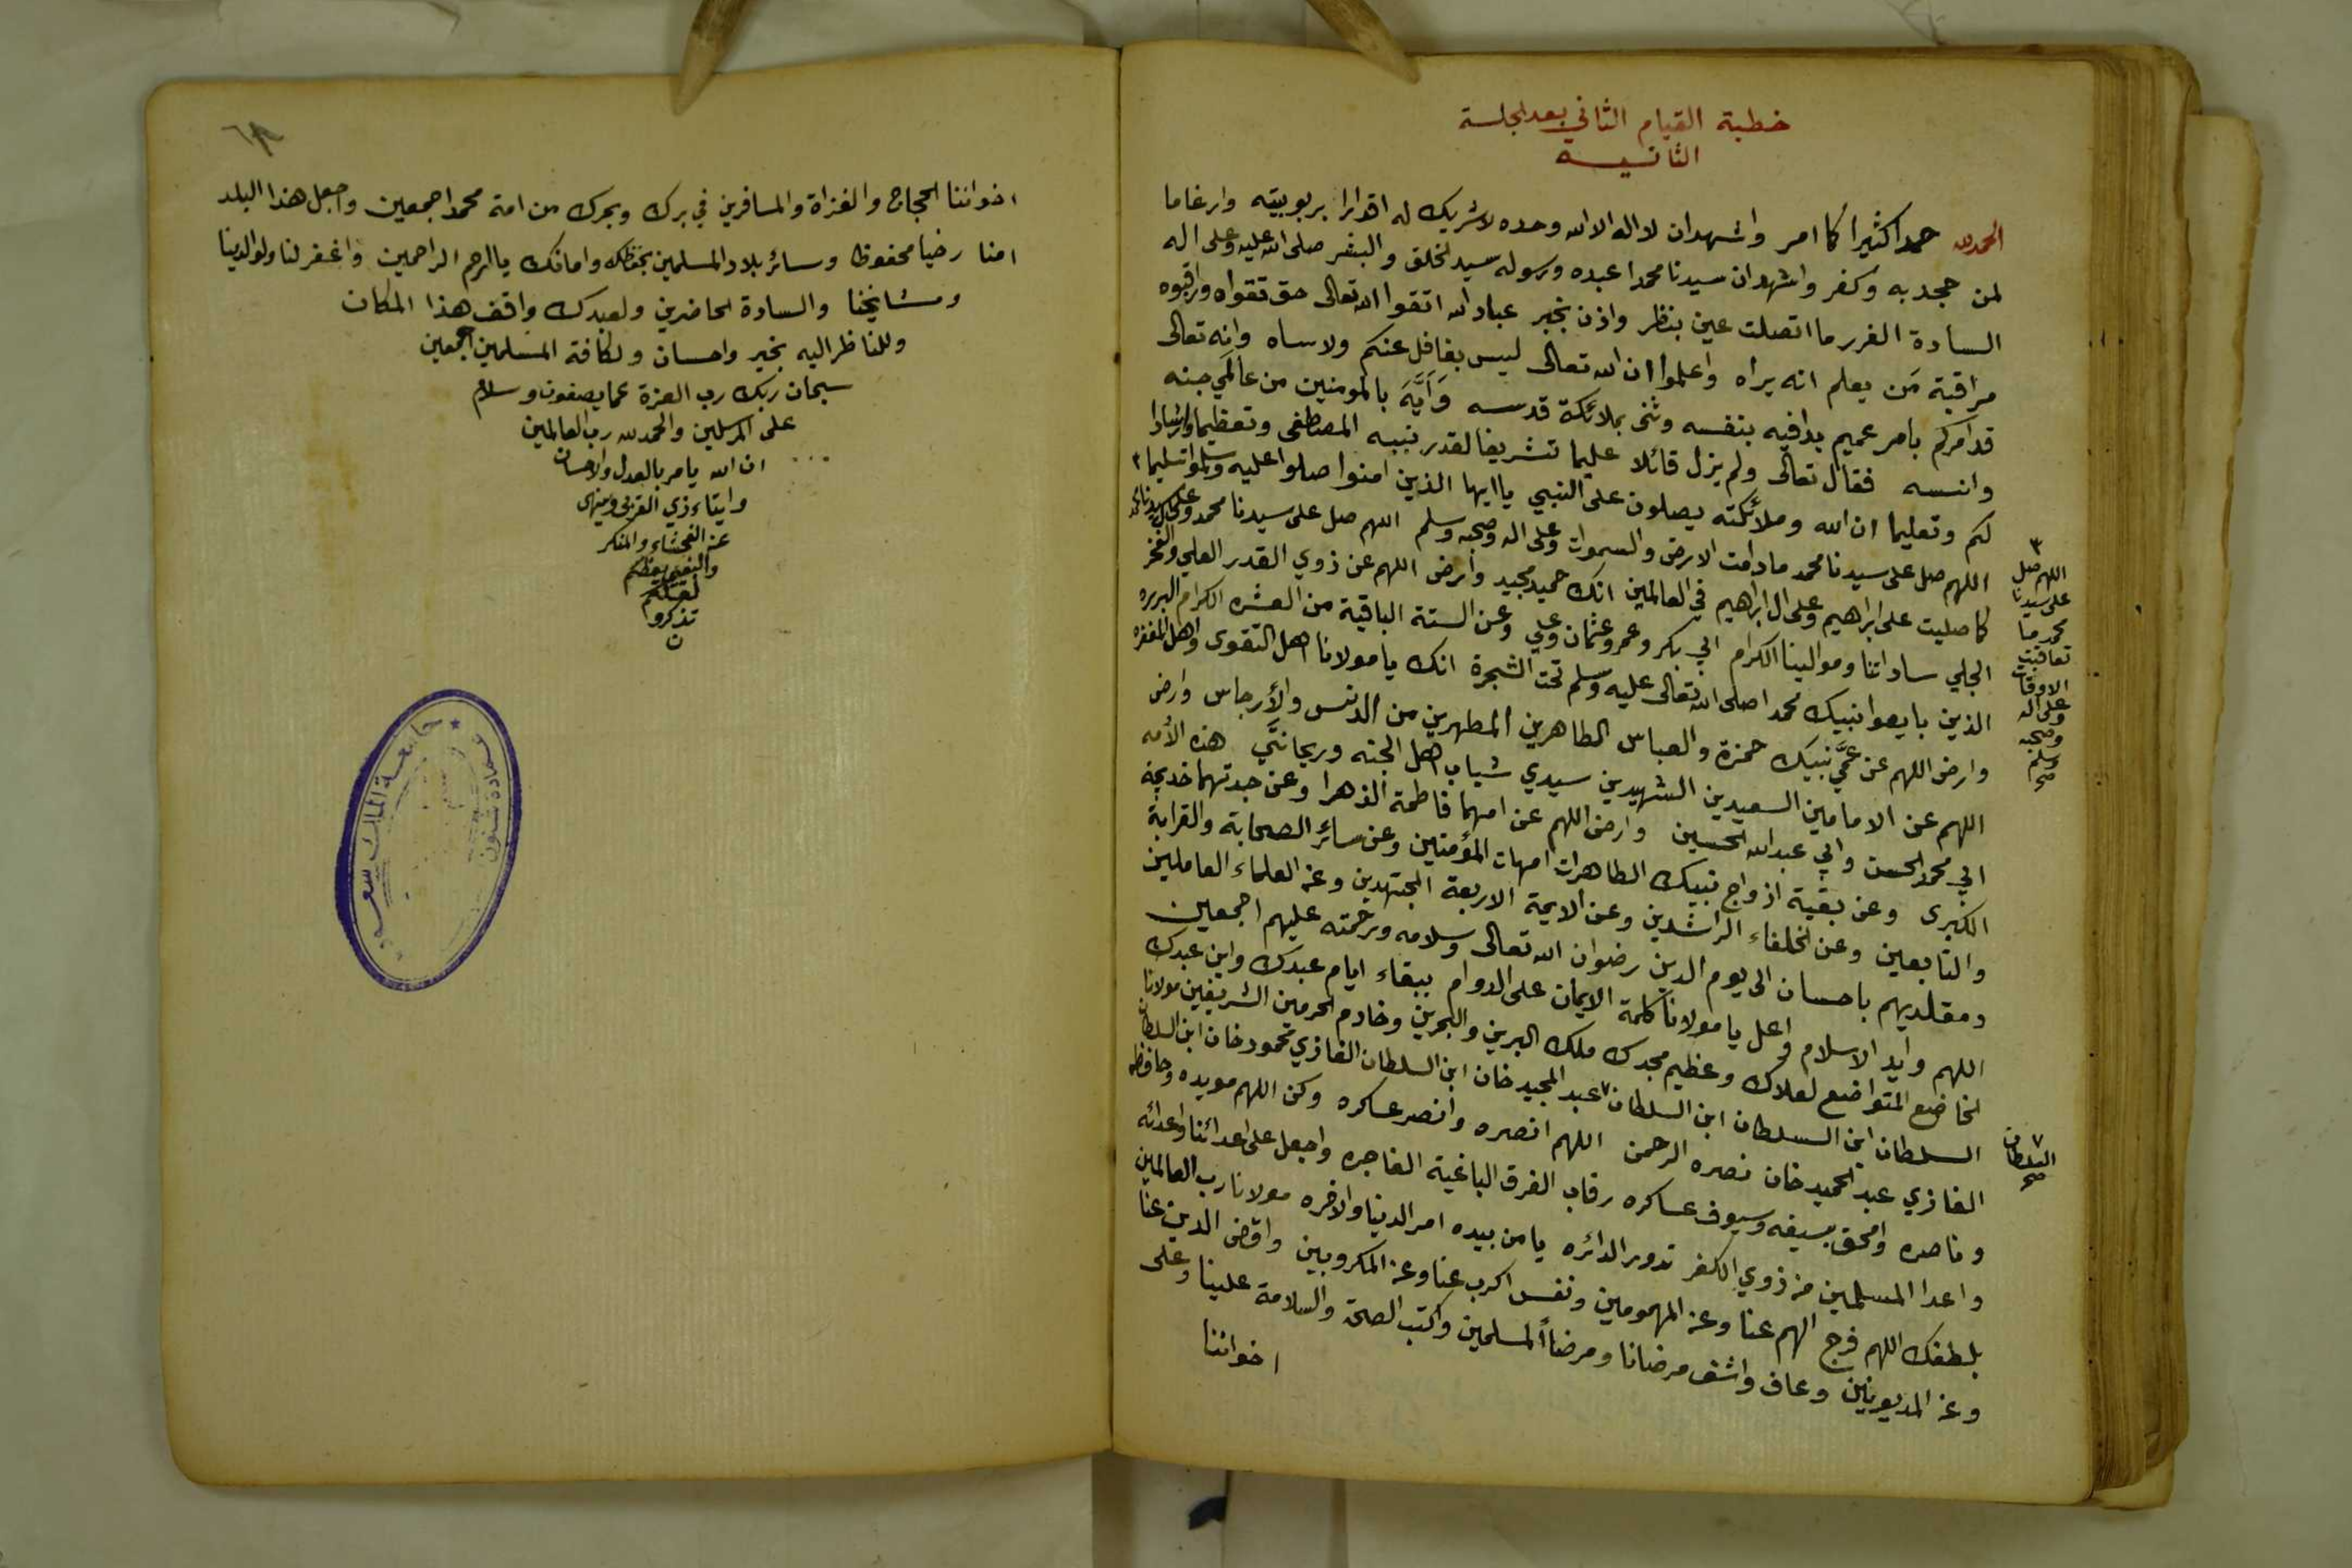 خطبة القيام الثاني بعد الجلسة
الثانيـــه
الحمد لله حمدا كثيرا كما امر واشهد ان لا اله الا الله وحده لا شريك له اقرارا بربوبيته وارغاما
لمن جحد به وكفر واشهد ان سيدنا محمدا عبده ورسوله سيد الخلق والبشر صلى الله عليه وعلى اله
السادة الغرر ما اتصلت عين بنظر واذن بخبر عباد الله اتقوا الله تعالى حق تقواه وراقبوه
مراقبة من يعلم انه يراه واعلموا ان الله تعالى ليس بغافل عنكم ولا ساه وانه تعالى
قد امركم بامر عميم بدا فيه بنفسه وثنى بملائكة قدسه وَاَيَّهَ بالمومنين من عالمي جنه
وانسه فقال تعالى ولم يزل قائلا عليما تشريفا لقدر نبيه المصطفى وتعظيما وارشادا
لكم وتعليما ان الله وملائكته يصلون على النبي يا ايها الذين امنوا صلوا عليه وسلموا تسليما ٣
اللهم صل على سيدنا محمد ما دامت الارض والسموات وعلى اله وصحبه وسلم اللهم صل على سيدنا محمد وعلى ال سيدنا محمد
كما صليت على ابراهيم وعلى ال ابراهيم في العالمين انك حميد مجيد وارض اللهم عن ذوي القدر العلي والفخر
الجلي ساداتنا وموالينا الكرام ابي بكر وعمر وعثمان وعلي وعن الستة الباقية من العشره الكرام البرره
الذين بايعوا نبيك محمدا صلى الله تعالى عليه وسلم تحت الشجرة انك يا مولانا اهل التقوى واهل المغفره
وارض اللهم عن عمَّي نبيك حمزة والعباس الطاهرين المطهرين من الدنس والأرجاس وارض
اللهم عن الامامين السعيدين الشهيدين سيدي شباب اهل الجنه وريحانتَي هذه الأمه
ابي محمد الحسن وابي عبد الله الحسين وارض اللهم عن امهما فاطمة الزهرا وعن جدتهما خديجة
الكبرى وعن بقية ازواج نبيك الطاهرات امهات المؤمنين وعن سائر الصحابة والقرابة
والتابعين وعن الخلفاء الراشدين وعن الايمة الاربعة المجتهدين وعن العلماء العاملين
ومقلديهم باحسان الى يوم الدين رضوان الله تعالى وسلامه ورحمته عليهم اجمعين
اللهم وايد الاسلام واعل يا مولانا كلمة الايمان على الدوام ببقاء ايام عبدك وابن عبدك
الخاضع المتواضع لعلاك وعظيم مجدك ملك البرين والبحرين وخادم الحرمين الشريفين مولانا
السلطان ابن السلطان ابن السلطان ٧ عبد المجيد خان ابن السلطان الغازي محمود خان ابن السلطان
الغازي عبد الحميد خان نصره الرحمن اللهم انصره وانصر عساكره وكن اللهم مويده وحافظه
وناصره وامحق بسيفه وسيوف عساكره رقاب الفرق الباغية الفاجره واجعل على اعدائنا واعدائه
واعدا المسلمين من ذوي الكفر تدور الدائره يا من بيده امر الدنيا والاخره مولانا رب العالمين
بلطفك اللهم فرج الهم عنا وعن المهمومين ونفس اكرب عنا وعن المكروبين واقض الدين عنا
وعن المديونين وعاف واشف مرضانا ومرضاأ المسلمين واكتب الصحة والسلامة علينا وعلى
اخواننا
٣
اللهم صل
على سيدنا
محمد ما
تعاقبت
الاوقات
وعلى اله
وصحبه
وسلم
صح
٧
السلطان
صح
اخواننا الحجاج والغزاة والمسافرين في برك وبحرك من امة محمد اجمعين واجعل هذا البلد
امنا رخيا محفوظا وسائر بلاد المسلمين بحفظك وامانك يا ارحم الراحمين واغفر لنا ولوالدينا
ومشايخنا والسادة الحاضرين ولعبدك واقف هذا المكان
وللناظر اليه بخير واحسان ولكافة المسلمين اجمعين
سبحان ربك رب العزة عما يصفون وسلام
على المرسلين والحمد لله رب العالمين
ان الله يامر بالعدل والاحسان
وايتاء ذي القربى وينهى
عن الفحشاء والمنكر
والبغي يعظكم
لعلكم
تذكرو
ن
جامعة الملك سعود
عمادة شئون